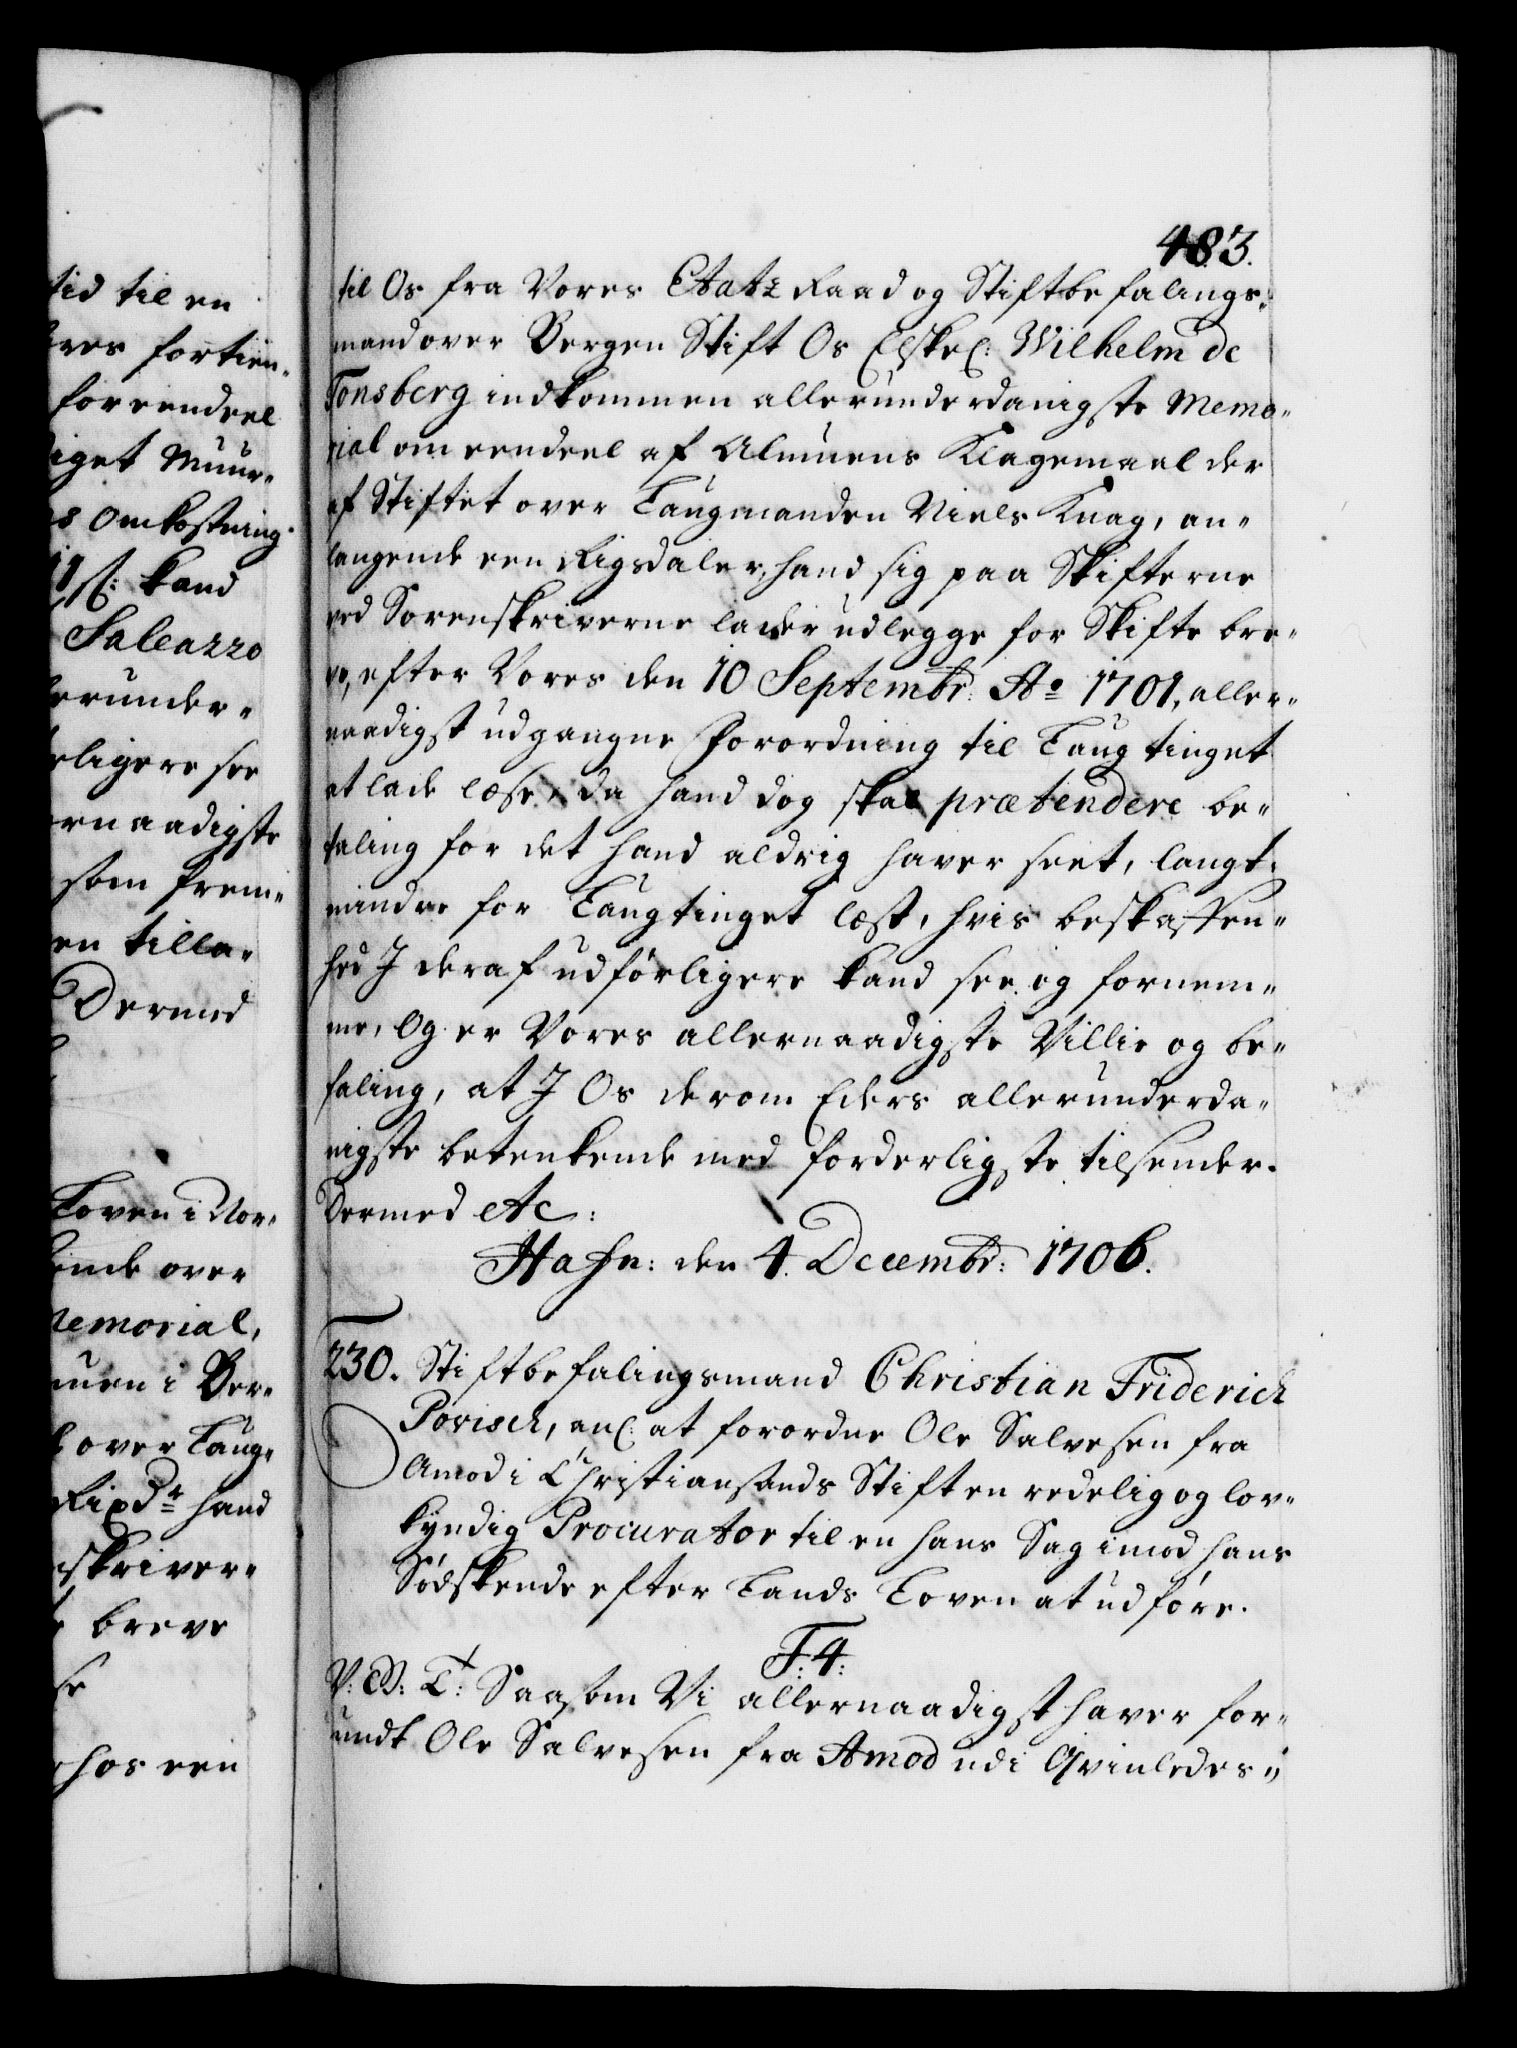 tid til en
res fortien-
for eendeel
iget Muur-
s Omkostning
sl: kand
Saleazzo
erunder-
eligere see
ernaadigste
som frem-
en tilla-
Dermed
Loven i Nor-
inde over
Memorial,
uen i Ber-
over Laug-
Rixdr hand
skriver-
breve
se
hos een
483.
til Os fra Vores Etatz Raad og Stiftbefalings-
mand over Bergen Stift Os Elskel: Wilhelm de
Tonsberg indkommen allerunderdanigste Memo-
rial om eendeel af Almuens Klagemaal der
af Stiftet over Laugmanden Niels Knag, an-
langende een Rigsdaler, hand sig paa Skifterne
ved Sorenskriverne lader udlegge for Skifte bre-
ve, efter Vores den 10 Septembr: Ao 1701, aller-
naadigst udgangne Forordning til Laugtinget
at lade læse, da hand dog skal prætendere be-
taling for det hand aldrig haver seet, langt
mindre for Laugtinget læst, hvis beskaffen-
hed I deraf udførligere kand see og fornem-
me, Og er Vores allernaadigste Villie og be-
faling, at I Os derom Eders allerunderda-
nigste betenkende med forderligste tilsender.
Dermed etc:
Hafn: den 4. Decembr: 1706.
230. Stiftbefalingsmand Christian Friderich
Povisch, anl: at forordne Ole Salvesen fra
Amod i Christiansands Stift en redelig og lov-
kyndig Procurator til en hans Sag imod hans
Södskende efter Lands Loven at udföre.
F: 4:
V: G: T: Saasom Vi allernaadigst haver for-
undt Ole Salvesen fra Amod udi Qvinledes-